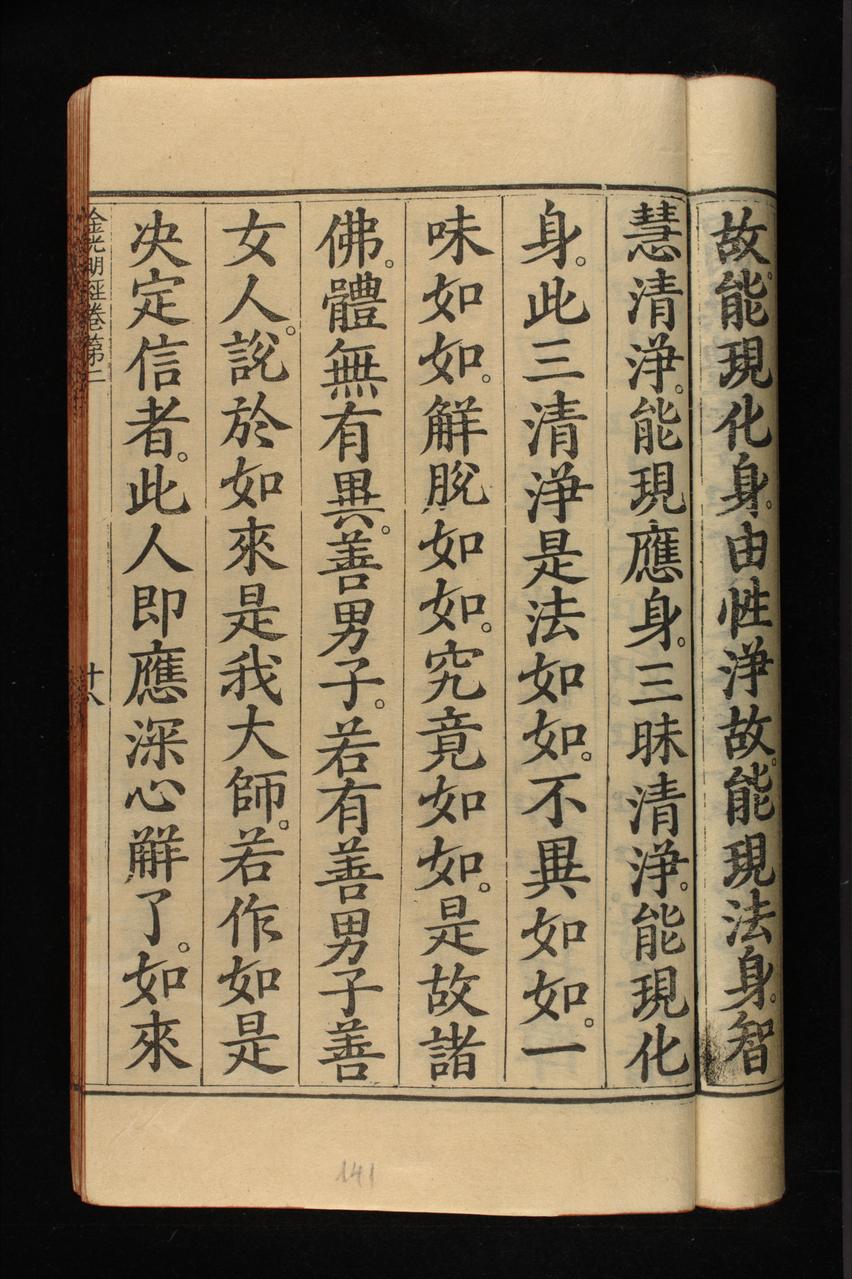 故。能現化身。由性淨故。能現法身。智
慧清淨。能現應身。三昧清淨。能現化
身。此三清淨是法如如。不異如如。一
味如如。解脫如如。究竟如如。是故諸
佛。體無有異。善男子。若有善男子善
女人。說於如來是我大師。若作如是
決定信者。此人即應深心解了。如來
金光明經卷第二
十八
141